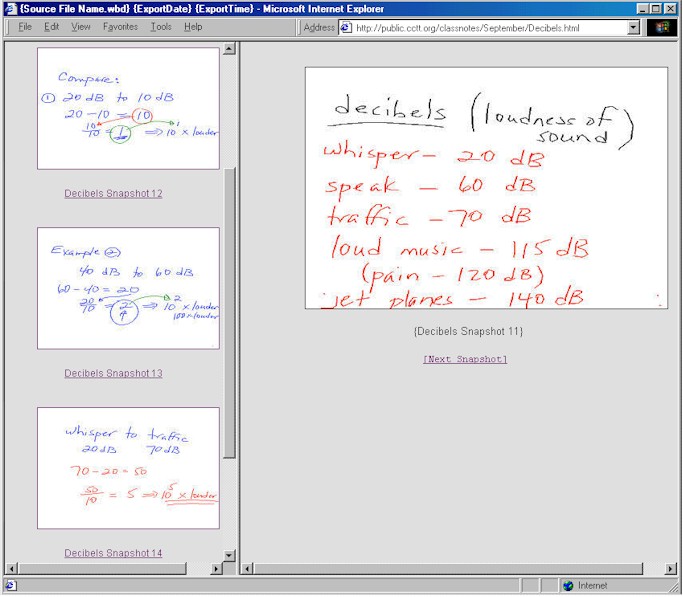 {Source File Name.wbd} {ExportDate} {ExportTime} - Microsoft Internet Explorer
File Edit View Favorites Tools Help
Address http://public.cctt.org/classnotes/September/Decibels.html
Compare:
① 20 dB to 10 dB
20 - 10 = 10
10/10 = 1 ⇒ 10¹ × louder
Decibels Snapshot 12
Example ②
40 dB to 60 dB
60 - 40 = 20
20/10 = 2 ⇒ 10² × louder
100 × louder
Decibels Snapshot 13
whisper to traffic
20 dB 70 dB
70 - 20 = 50
50/10 = 5 ⇒ 10⁵ × louder
Decibels Snapshot 14
decibels (loudness of
sound)
whisper - 20 dB
speak - 60 dB
traffic - 70 dB
loud music - 115 dB
(pain - 120 dB)
jet planes - 140 dB
{Decibels Snapshot 11}
[Next Snapshot]
Internet